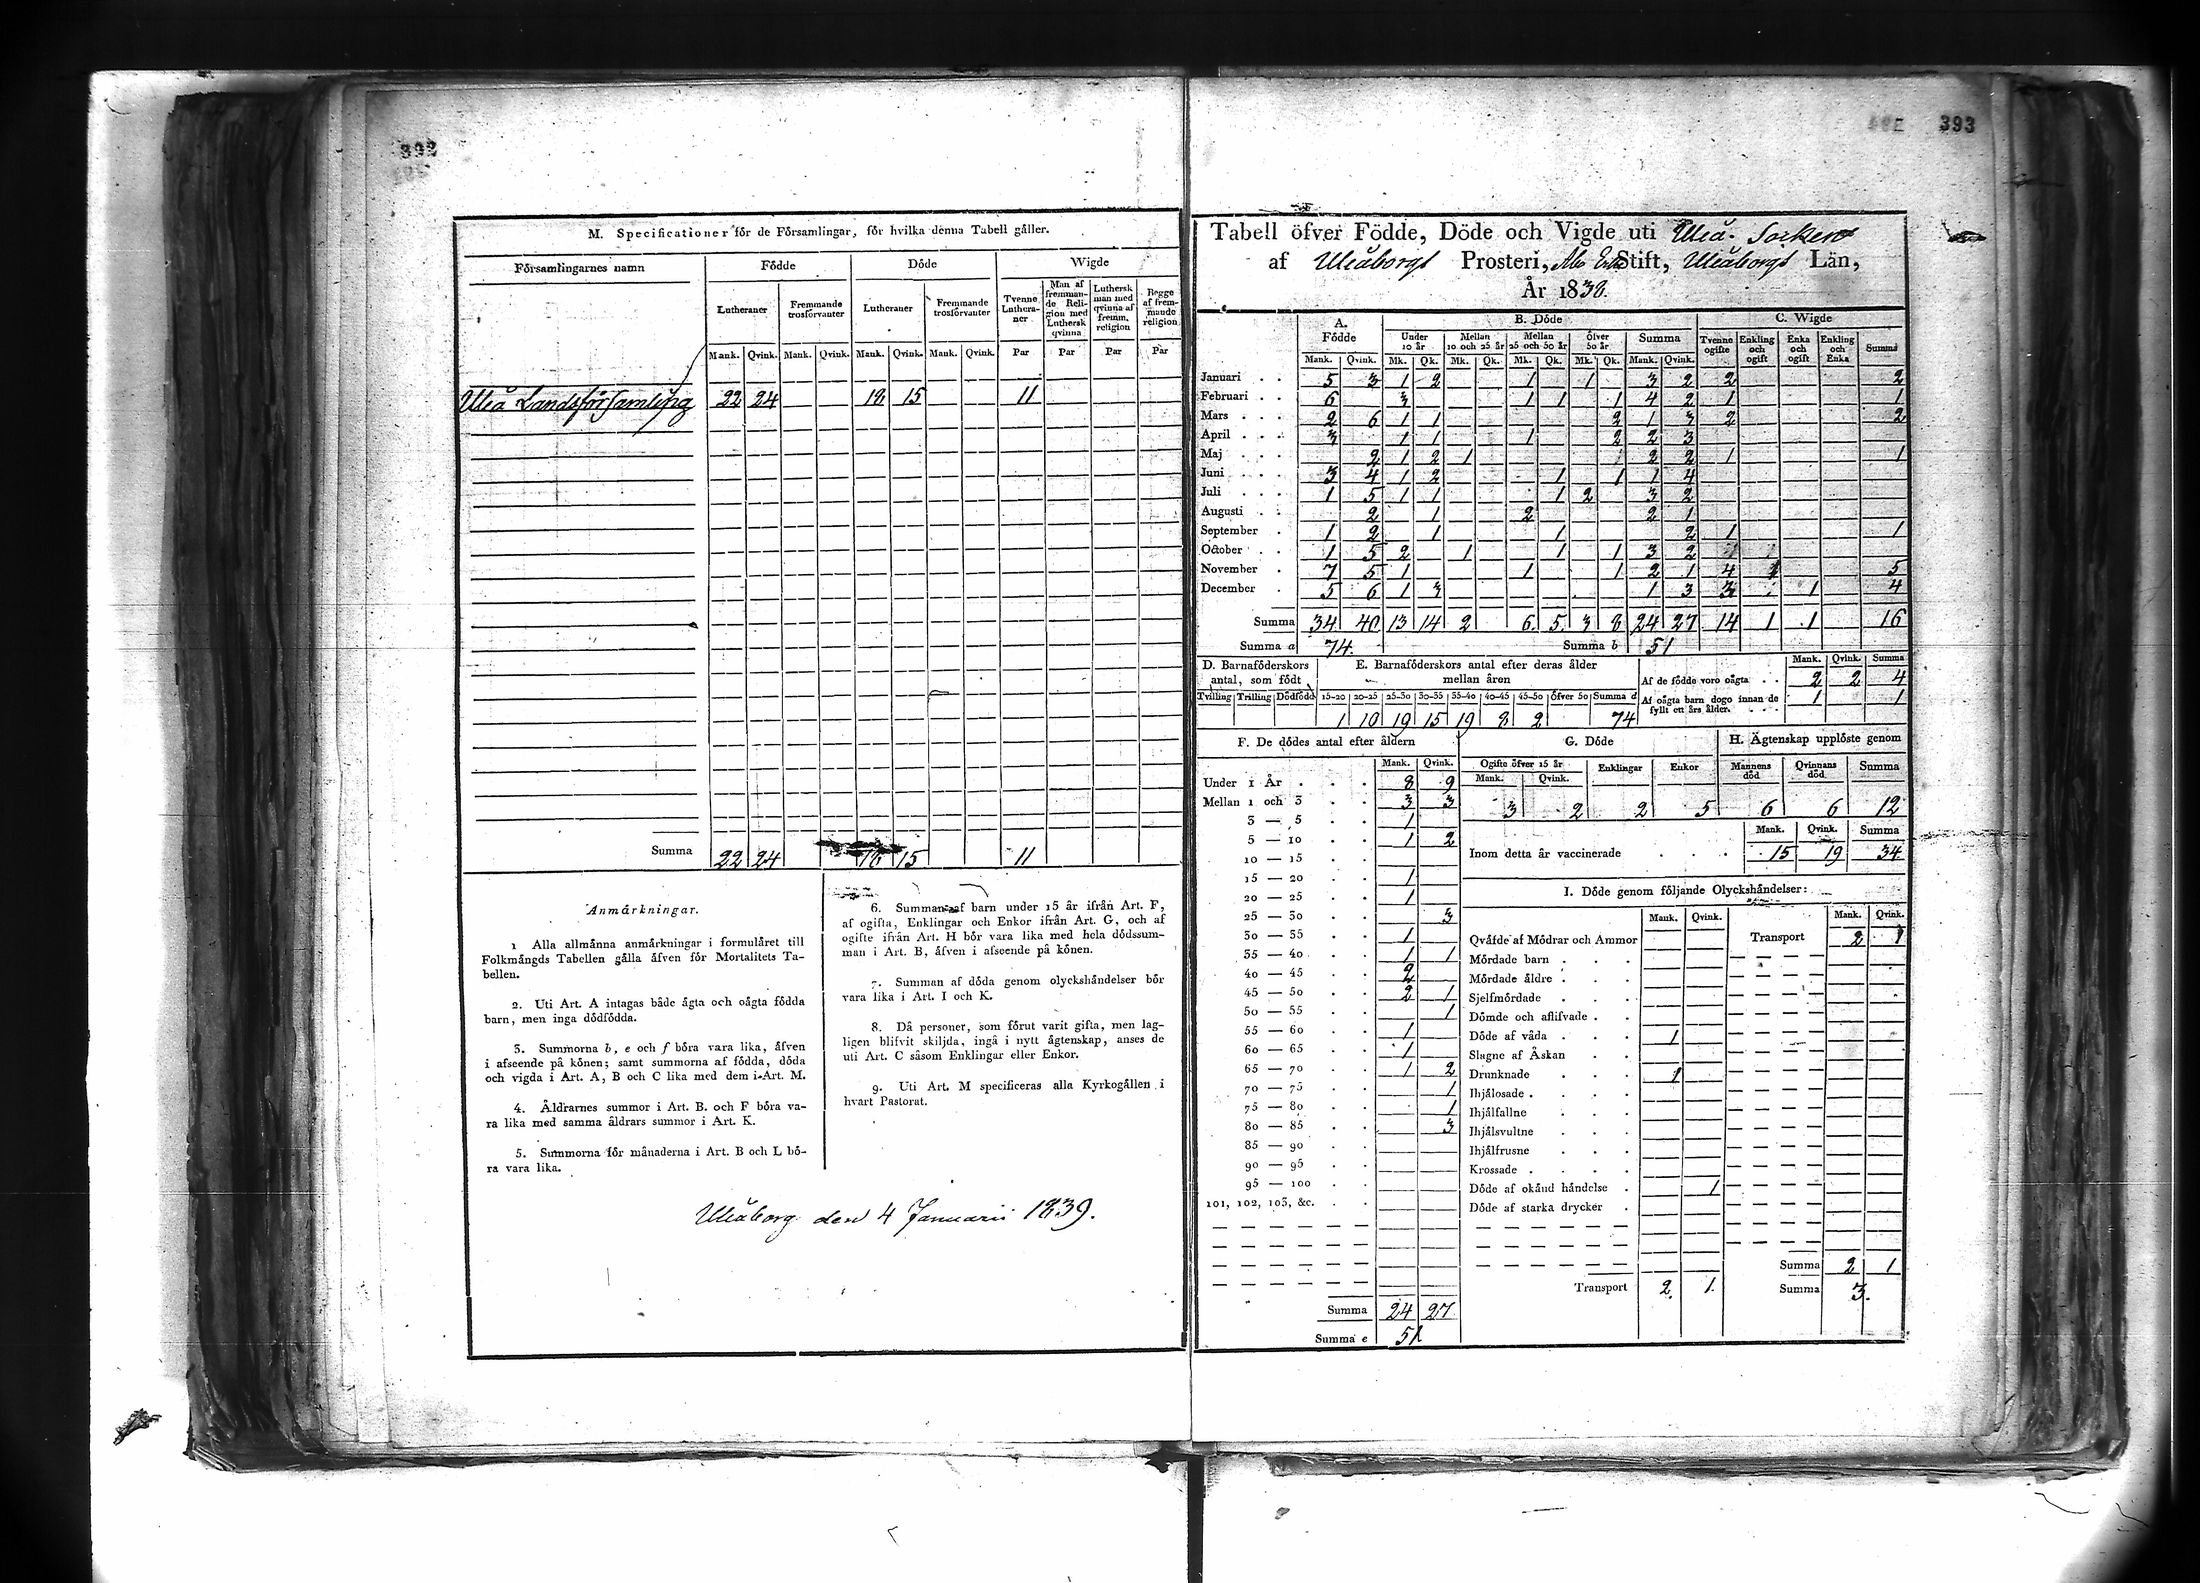 392
M. Specificationer för de Församlingar, för hvilka denna Tabell gäller.
Församlingarnes namn Födde Döde Wigde
Lutheraner Fremmande trosförvanter Lutheraner Fremmande trosförvanter Tvenne Lutheraner Man af fremmande Religion med Luthersk qvinna Luthersk man med qvinna af fremm. religion Begge af fremmande religion
Mank. Qvink. Mank. Qvink. Mank. Qvink. Mank. Qvink. Par Par Par Par
Uleå Landsförsamling 22 24 18 15 11
Summa 22 24 18 15 11
Anmärkningar.
1 Alla allmänna anmärkningar i formuläret till
Folkmängds Tabellen gälla äfven för Mortalitets Ta-
bellen.
2. Uti Art. A intagas både ägta och oägta födda
barn, men inga dödfödda.
3. Summorna b, e och f böra vara lika, äfven
i afseende på könen; samt summorna af födda, döda
och vigda i Art. A, B och C lika med dem i Art. M.
4. Åldrarnes summor i Art. B. och F böra va-
ra lika med samma åldrars summor i Art. K.
5. Summorna för månaderna i Art. B och L bö-
ra vara lika.
6. Summan af barn under 15 år ifrån Art. F,
af ogifta, Enklingar och Enkor ifrån Art. G, och af
ogifte ifrån Art. H bör vara lika med hela dödssum-
man i Art. B, äfven i afseende på könen.
7. Summan af döda genom olyckshändelser bör
vara lika i Art. I och K.
8. Då personer, som förut varit gifta, men lag-
ligen blifvit skiljda, ingå i nytt ägtenskap, anses de
uti Art. C såsom Enklingar eller Enkor.
9. Uti Art. M specificeras alla Kyrkogällen i
hvart Pastorat.
Uleåborg den 4 Januarii 1839.
393
Tabell öfver Födde, Döde och Vigde uti Uleå Socken
af Uleåborgs Prosteri, Åbo Erke Stift, Uleåborgs Län,
År 1838.
A. Födde B. Döde C. Wigde
Under 10 år Mellan 10 och 25 år Mellan 25 och 50 år Öfver 50 år Summa Tvenne ogifte Enkling och ogift Enka och ogift Enkling och Enka Summa
Mank. Qvink. Mk. Qk. Mk. Qk. Mk. Qk. Mk. Qk. Mank. Qvink.
Januari 5 3 1 2 1 1 3 2 2 2
Februari 6 3 1 1 1 4 2 1 1
Mars 2 6 1 1 2 1 3 2 2
April 3 1 1 1 2 2 3
Maj 2 1 2 1 2 2 1 1
Juni 3 4 1 2 1 1 1 4
Juli 1 5 1 1 1 2 3 2
Augusti 2 1 2 2 1
September 1 2 1 1 2 1 1
October 1 5 2 1 1 1 3 2
November 7 5 1 1 1 2 1 4 1 5
December 5 6 1 3 1 3 3 1 4
Summa 34 40 13 14 2 6 5 3 8 24 27 14 1 1 16
Summa a 74. Summa b 51
D. Barnaföderskors antal, som födt E. Barnaföderskors antal efter deras ålder mellan åren
Mank. Qvink. Summa
Af de födde voro oägta 2 2 4
Tvilling Trilling Dödfödd 15-20 20-25 25-30 30-35 35-40 40-45 45-50 öfver 50 Summa d
Af oägta barn dogo innan de fyllt ett års ålder. 1 1
1 10 19 15 19 8 2 74
F. De dödes antal efter åldern
Mank. Qvink.
Under 1 År 8 9
Mellan 1 och 3 3 3
3 — 5 1
5 — 10 1 2
10 — 15
15 — 20 1
20 — 25 1
25 — 30 3
30 — 35 1
35 — 40 1 1
40 — 45 2
45 — 50 2 1
50 — 55 1
55 — 60 1
60 — 65 1
65 — 70 1 2
70 — 75 1
75 — 80 1
80 — 85 3
85 — 90
90 — 95
95 — 100
101, 102, 103, &c.
Summa 24 27
Summa e 51
G. Döde H. Ägtenskap upplöste genom
Ogifte öfver 15 år Enklingar Enkor Mannens död Qvinnans död Summa
Mank. Qvink.
3 2 2 5 6 6 12
Mank. Qvink. Summa
Inom detta år vaccinerade 15 19 34
I. Döde genom följande Olyckshändelser:
Mank. Qvink. Mank. Qvink.
Qväfde af Mödrar och Ammor Transport 2 1
Mördade barn
Mördade äldre
Sjelfmördade
Dömde och aflifvade
Döde af våda 1
Slagne af Åskan
Drunknade 1
Ihjälosade
Ihjälfallne
Ihjälsvultne
Ihjälfrusne
Krossade
Döde af okänd händelse 1
Döde af starka drycker
Summa 2 1
Transport 2. 1. Summa 3.